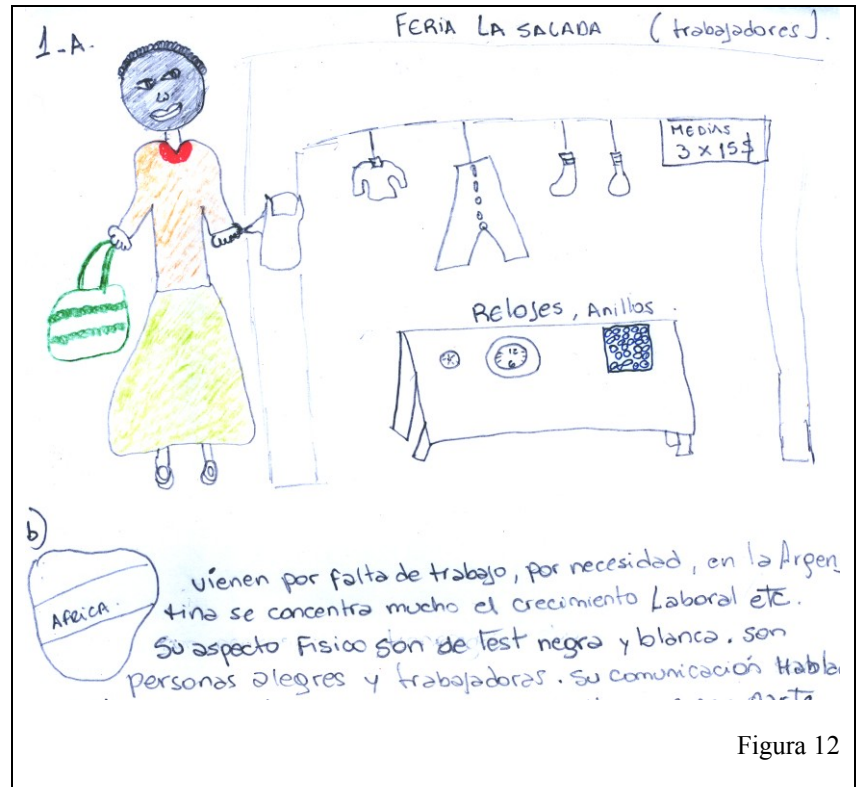 1-A.
FERIA LA SALADA (trabajadores).
MEDIAS
3 x 15$
RELOJES, Anillos.
12
6
b)
AFRICA.
vienen por falta de trabajo, por necesidad, en la Argen
tina se concentra mucho el crecimiento Laboral etc.
Su aspecto Fisico son de test negra y blanca. son
personas alegres y trabajadoras. Su comunicación Habla
Figura 12